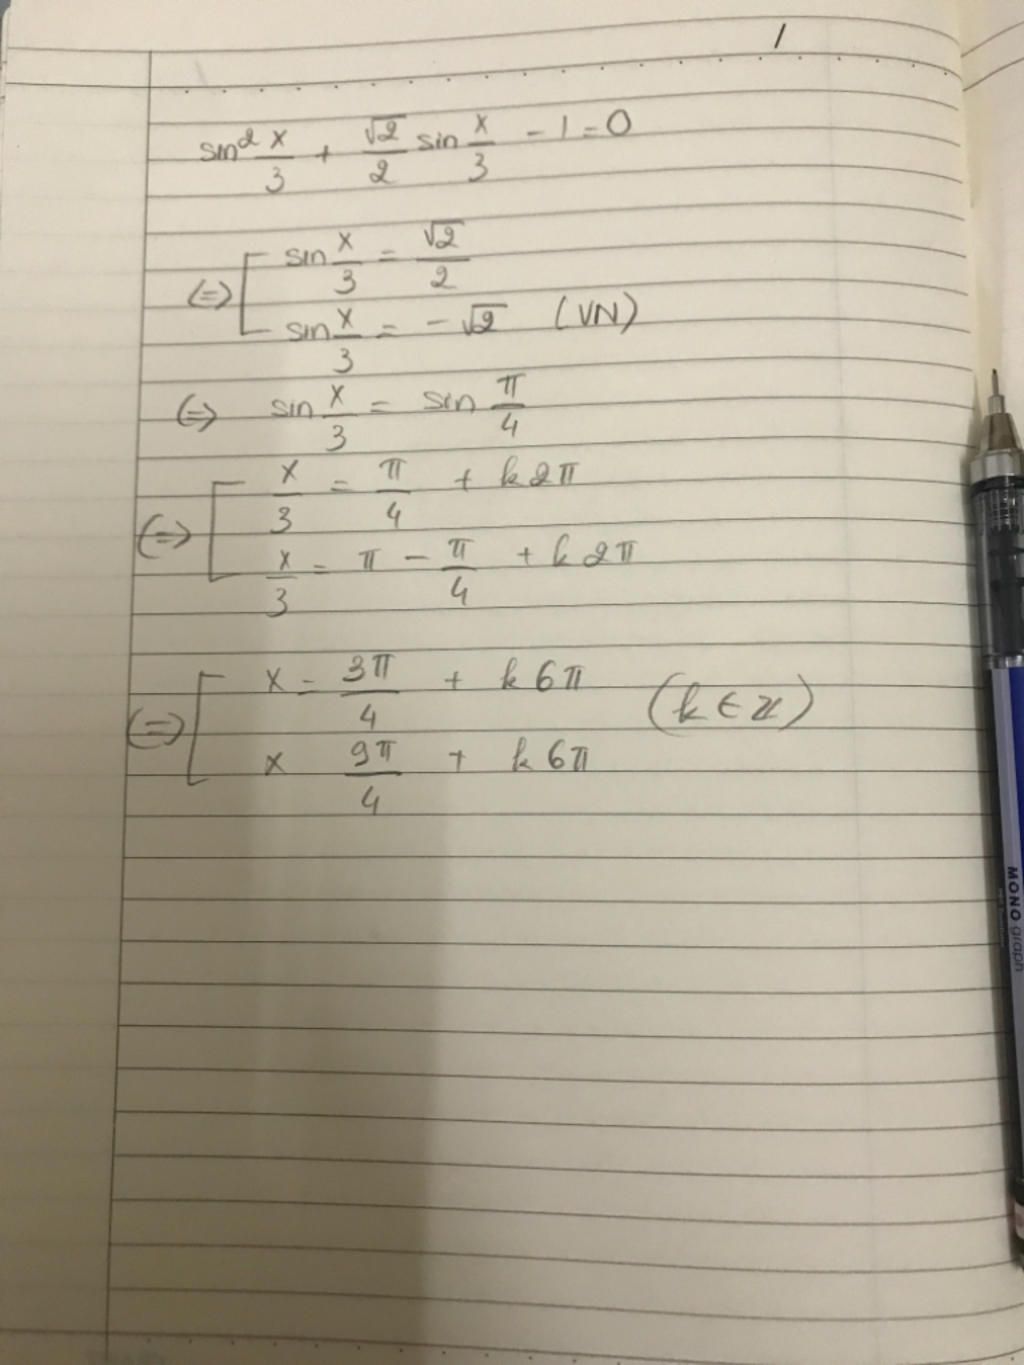 /
sin² x/3 + √2/2 sin x/3 - 1 = 0
(=) [ sin x/3 = √2/2
sin x/3 = -√2 (VN)
(=) sin x/3 = sin π/4
(=) [ x/3 = π/4 + k2π
x/3 = π - π/4 + k2π
(=) [ x = 3π/4 + k6π (k ∈ Z)
x 9π/4 + k6π
MONO graph